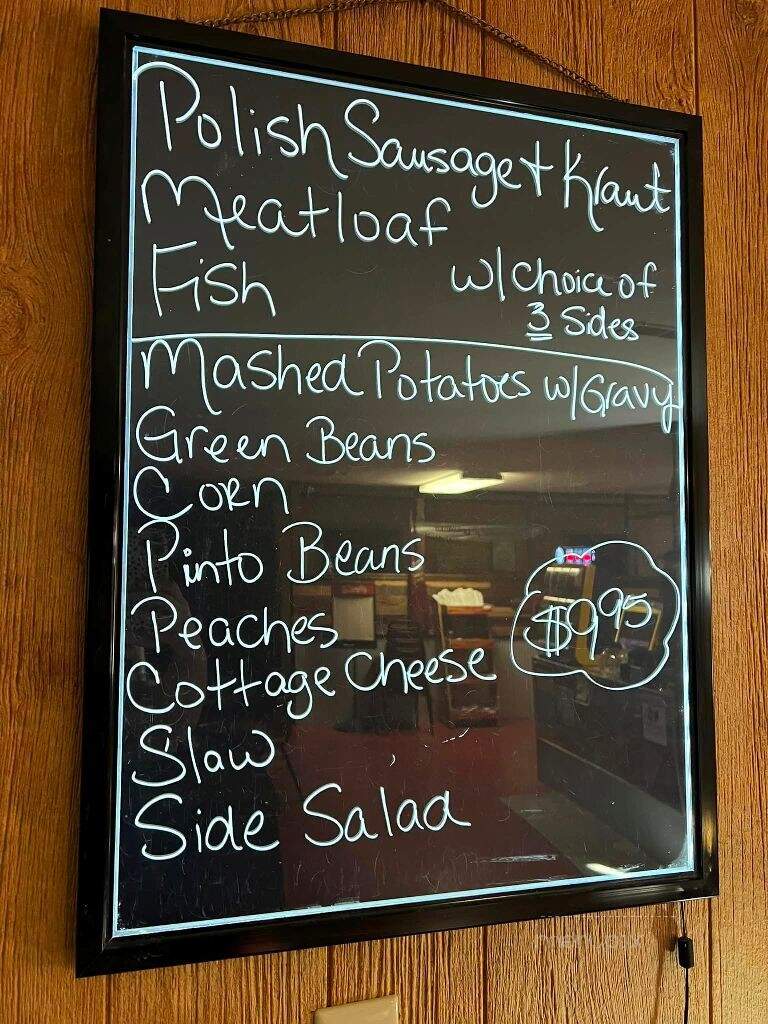 Polish Sausage + Kraut
Meatloaf
Fish
w/ Choice of
3 Sides
Mashed Potatoes w/ Gravy
Green Beans
Corn
Pinto Beans
Peaches
$9.95
Cottage Cheese
Slaw
Side Salad
menupix